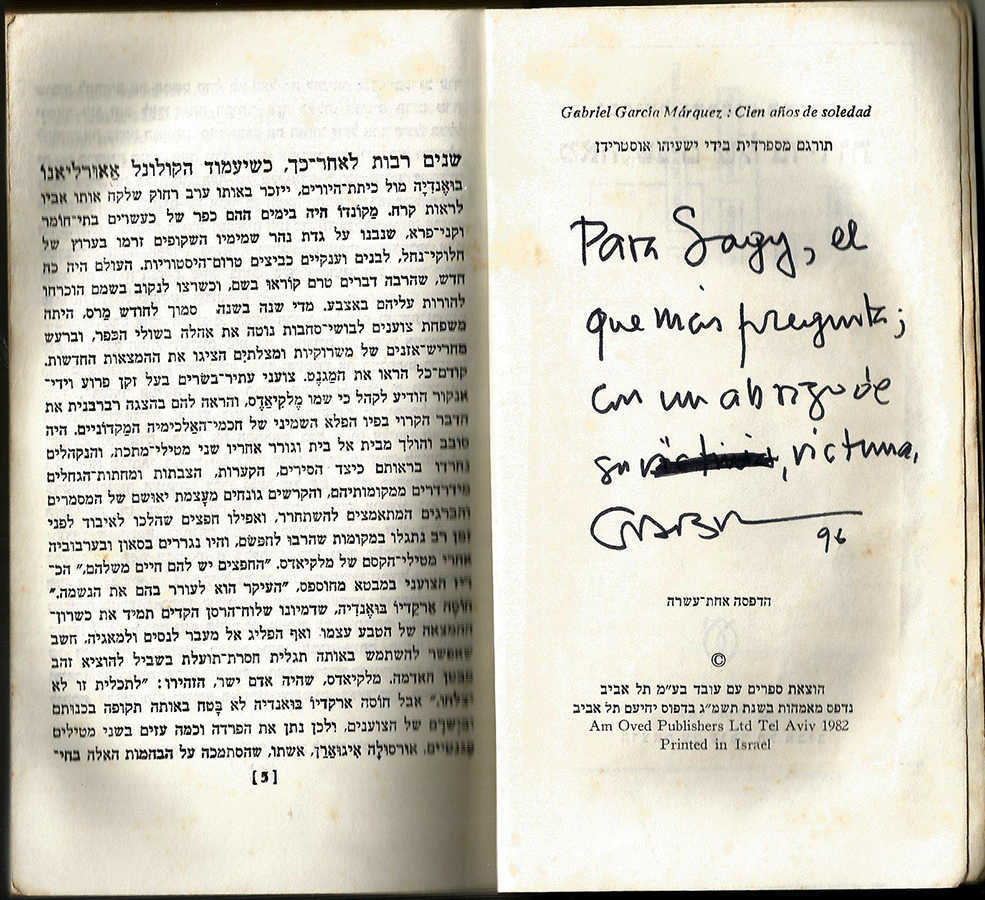 Gabriel García Márquez : Cien años de soledad
תורגם מספרדית בידי ישעיהו אוסטרידן
Para Sagy, el
que más pregunta;
con un abrazo de
su victima, victima,
GABO 96
הדפסה אחת־עשרה
©
הוצאת ספרים עם עובד בע״מ תל אביב
נדפס מאמהות בשנת תשמ״ג בדפוס יחיעם תל אביב
Am Oved Publishers Ltd Tel Aviv 1982
Printed in Israel
שנים רבות לאחר־כך, כשיעמוד הקולונל אָאוּרליאנוֹ
בּוּאֶנדִיָה מול כיתת־היורים, ייזכר באותו ערב רחוק שלקח אותו אביו
לראות קרח. מַקוֹנדוֹ היה בימים ההם כפר של כעשרים בתי־חומר
וקני־פרא, שנבנו על גדת נהר שמימיו השקופים זרמו בערוץ של
חלוקי־נחל, לבנים וענקיים כביצים טרום־היסטוריות. העולם היה כה
חדש, שהרבה דברים טרם קוֹראוּ בשם, וכשרצו לנקוב בשמם הוכרחו
להורות עליהם באצבע. מדי שנה בשנה, סמוך לחודש מַרס, היתה
משפחת צוענים לבושי־סחבות נוטה את אהלה בשולי הכּפר, וברעש
מחריש־אזנים של משרוקיות ומצלתיִם הציגו את ההמצאות החדשות.
קודם־כל הראו את המַגנֶט. צועני עתיר־בּשׂרים בעל זקן פרוע וידי־
אנקור הודיע לקהל כי שמו מֶלקִיאַדֶס, והראה להם בהצגה רברבנית את
הדבר הקרוי בפיו הפלא השמיני של חכמי־האַלכימיה המַקדוניים. היה
סובב והולך מבית אל בית וגורר אחריו שני מטילי־מתכת, והנקהלים
נחרדו בראותם כיצד הסירים, הקערות, הצבתות ומחתות־הגחלים
מידרדרים ממקומותיהם, והקרשים גונחים מעָצמת יאוּשם של המסמרים
והברגים המתאמצים להשתחרר, ואפילו חפצים שהלכו לאיבוד לפני
זמן רב נתגלו במקומות שהרבּו לחפּשׂם, והיו נגררים בסאון ובערבוביה
אחרי מטילי־הקסם של מלקיאדס. ״החפצים יש להם חיים משלהם,״ הכ־
ריז הצועני במבטא מחוספס, ״העיקר הוא לעורר בהם את הנשמה.״
חוֹסֶה אַרקַדיוֹ בּוּאנדיה, שדמיונו שלוּח־הרסן הקדים תמיד את כשרון־
ההמצאה של הטבע עצמו, ואף הפליג אל מעבר לנסים ולמאגיה, חשב
שאפשר להשתמש באותה תגלית חסרת־תועלת בשביל להוציא זהב
מבטן האדמה. מלקיאדס, שהיה אדם ישר, הזהירו: ״לתכלית זו לא
יצלחו.״ אבל חוֹסה ארקדיוֹ בּוּאנדיה לא בָּטח באותה תקופה בכנותם
וביָשרם של הצוענים, ולכן נתן את הפרדה וכמה עזים בשני מטילים
מגנטיים. אוּרסוּלָה אִיגוּאַרַן, אשתו, שהסתמכה על הבהמות האלה בחי־
[5]